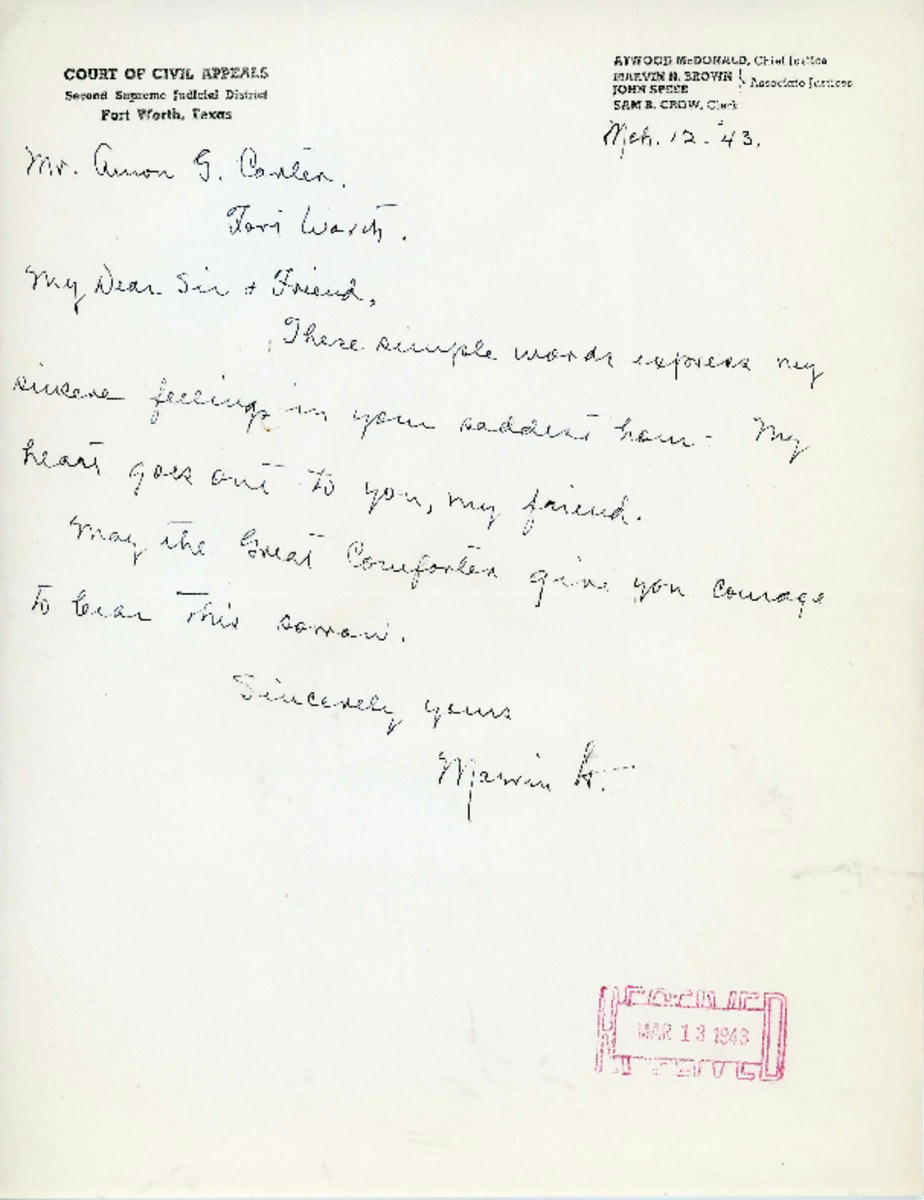 COURT OF CIVIL APPEALS
Second Supreme Judicial District
Fort Worth, Texas
ATWOOD McDONALD, Chief Justice
MARVIN H. BROWN
JOHN SPEER
Associate Justices
SAM B. CROW, Clerk
Mch. 12 - '43.
Mr. Amon G. Carter,
Fort Worth.
My Dear Sir & Friend,
These simple words express my
sincere feelings in your saddest hour - My
heart goes out to you, my friend.
May the Great Comforter give you courage
to bear this sorrow.
Sincerely yours
Marvin H.
RECEIVED
MAR 13 1943